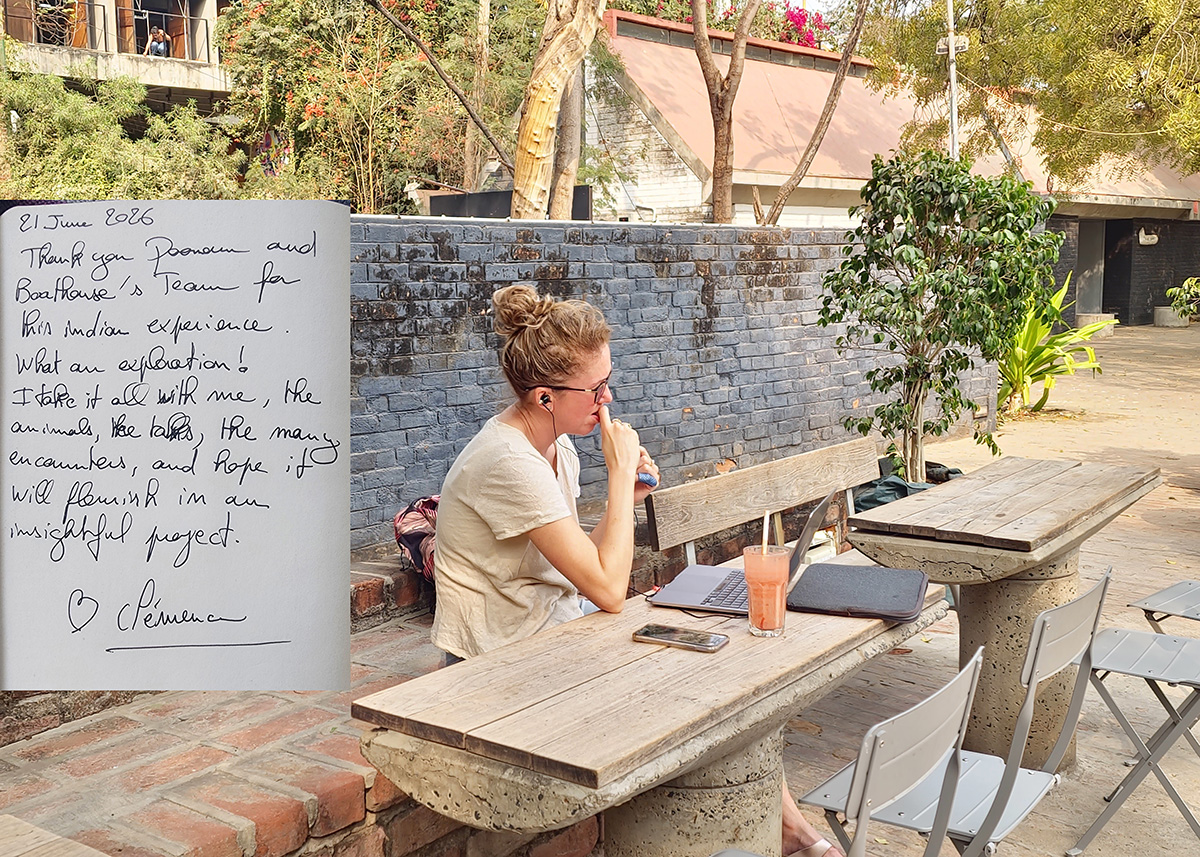 21 June 2026
Thank you Poonam and
Boathouse's Team for
this indian experience.
What an exploration!
I take it all with me, the
animals, the talks, the many
encounters, and hope it
will flourish in an
insightful project.
♡ Clémence